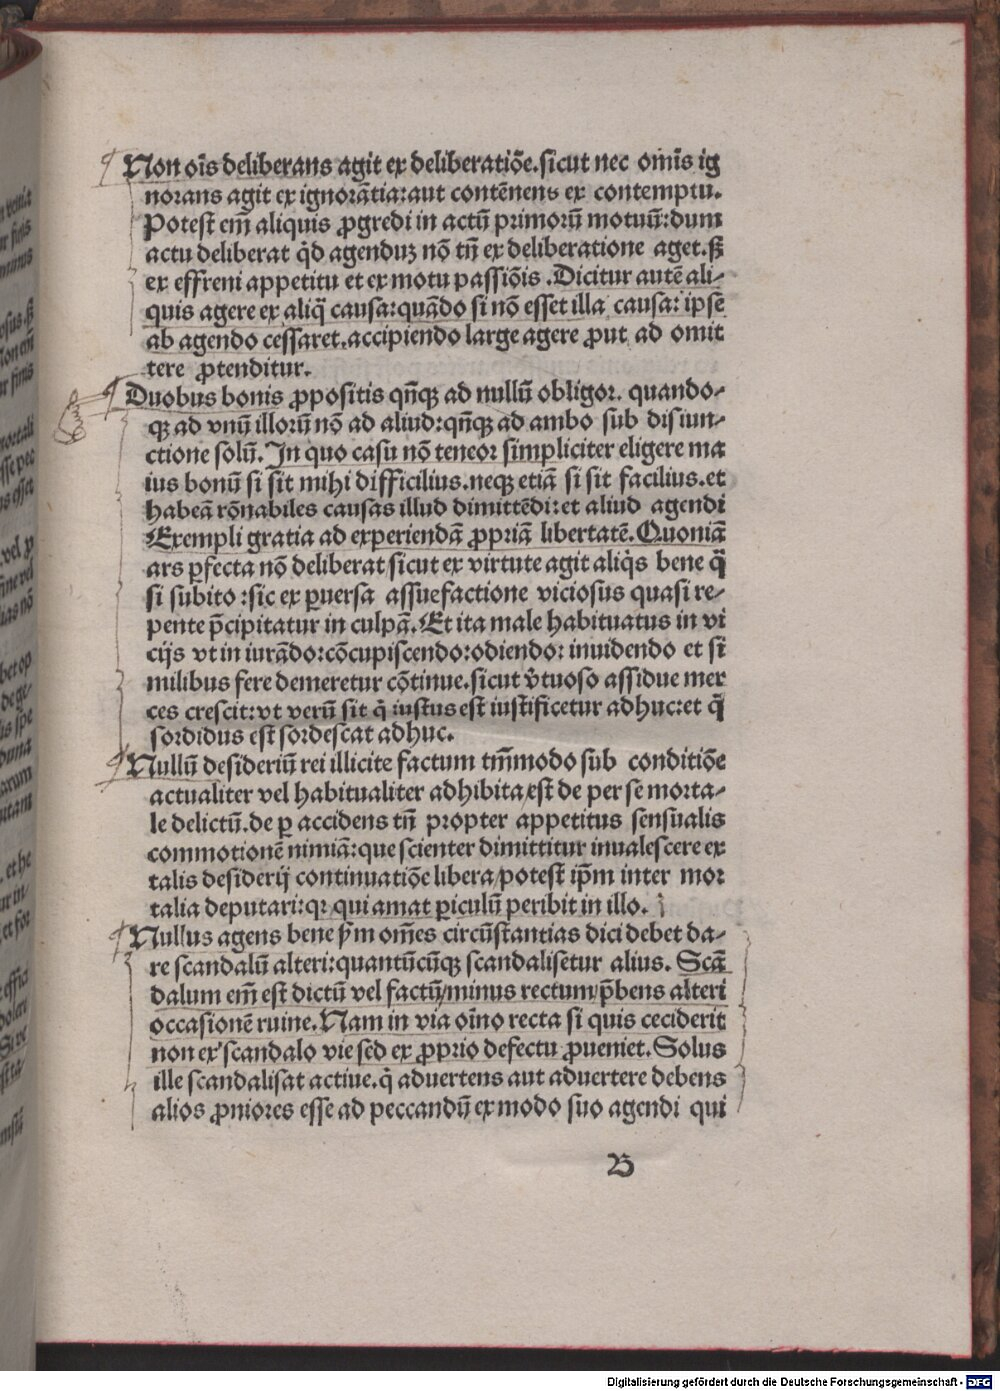 Non oīs deliberans agit ex deliberatiōe.sicut nec omīs ig
norans agit ex ignorātia:aut contēnens ex contemptu.
Potest em̄ aliquis ꝓgredi in actū primorū motuū:dum
actu deliberat qͥd agenduꝫ nō tn̄ ex deliberatione aget.sꝫ
ex effreni appetitu et ex motu passiōis .Dicitur autē ali-
quis agere ex aliq̄ causa:quādo si nō esset illa causa: ipse
ab agendo cessaret.accipiendo large agere ꝓut ad omit
tere ꝓtenditur.
Duobus bonis ꝓpositis qn̄qꝫ ad nullū obligor. quando-
qꝫ ad vnū illorū nō ad aliud:qn̄qꝫ ad ambo sub disiun-
ctione solū. In quo casu nō teneor simpliciter eligere ma
ius bonū si sit mihi difficilius.neqꝫ etiā si sit facilius.et
habeā rōnabiles causas illud dimittēdi:et aliud agendi
Exempli gratia ad experiendā ꝓpriā libertatē.Quoniā
ars ꝑfecta nō deliberat sicut ex virtute agit aliqͥs bene q̄
si subito :sic ex ꝑuersa assuefactione viciosus quasi re-
pente p̄cipitatur in culpā.Et ita male habituatus in vi
cijs vt in iurādo:cōcupiscendo:odiendo: inuidendo et si
milibus fere demeretur cōtinue.sicut v̓tuoso assidue mer
ces crescit:vt verū sit qͥ iustus est iustificetur adhuc:et qͥ
sordidus est sordescat adhuc.
Nullū desideriū rei illicite factum tm̄modo sub conditiōe
actualiter vel habitualiter adhibita/est de per se morta-
le delictū.de ꝑ accidens tn̄ propter appetitus sensualis
commotionē nimiā:que scienter dimittitur inualescere ex
talis desiderij continuatiōe libera/potest ip̄m inter mor
talia deputari:qꝛ qui amat ꝑiculū peribit in illo.
Nullus agens bene ẜm om̄es circūstantias dici debet da-
re scandalū alteri:quantūcūqꝫ scandalisetur alius. Scā
dalum em̄ est dictū vel factū/minus rectum/p̄bens alteri
occasionē ruine.Nam in via oīno recta si quis ceciderit
non ex scandalo vie sed ex ꝓprio defectu ꝓueniet.Solus
ille scandalisat actiue.qͥ aduertens aut aduertere debens
alios ꝓniores esse ad peccandū ex modo suo agendi qui
B
Digitalisierung gefördert durch die Deutsche Forschungsgemeinschaft - DFG